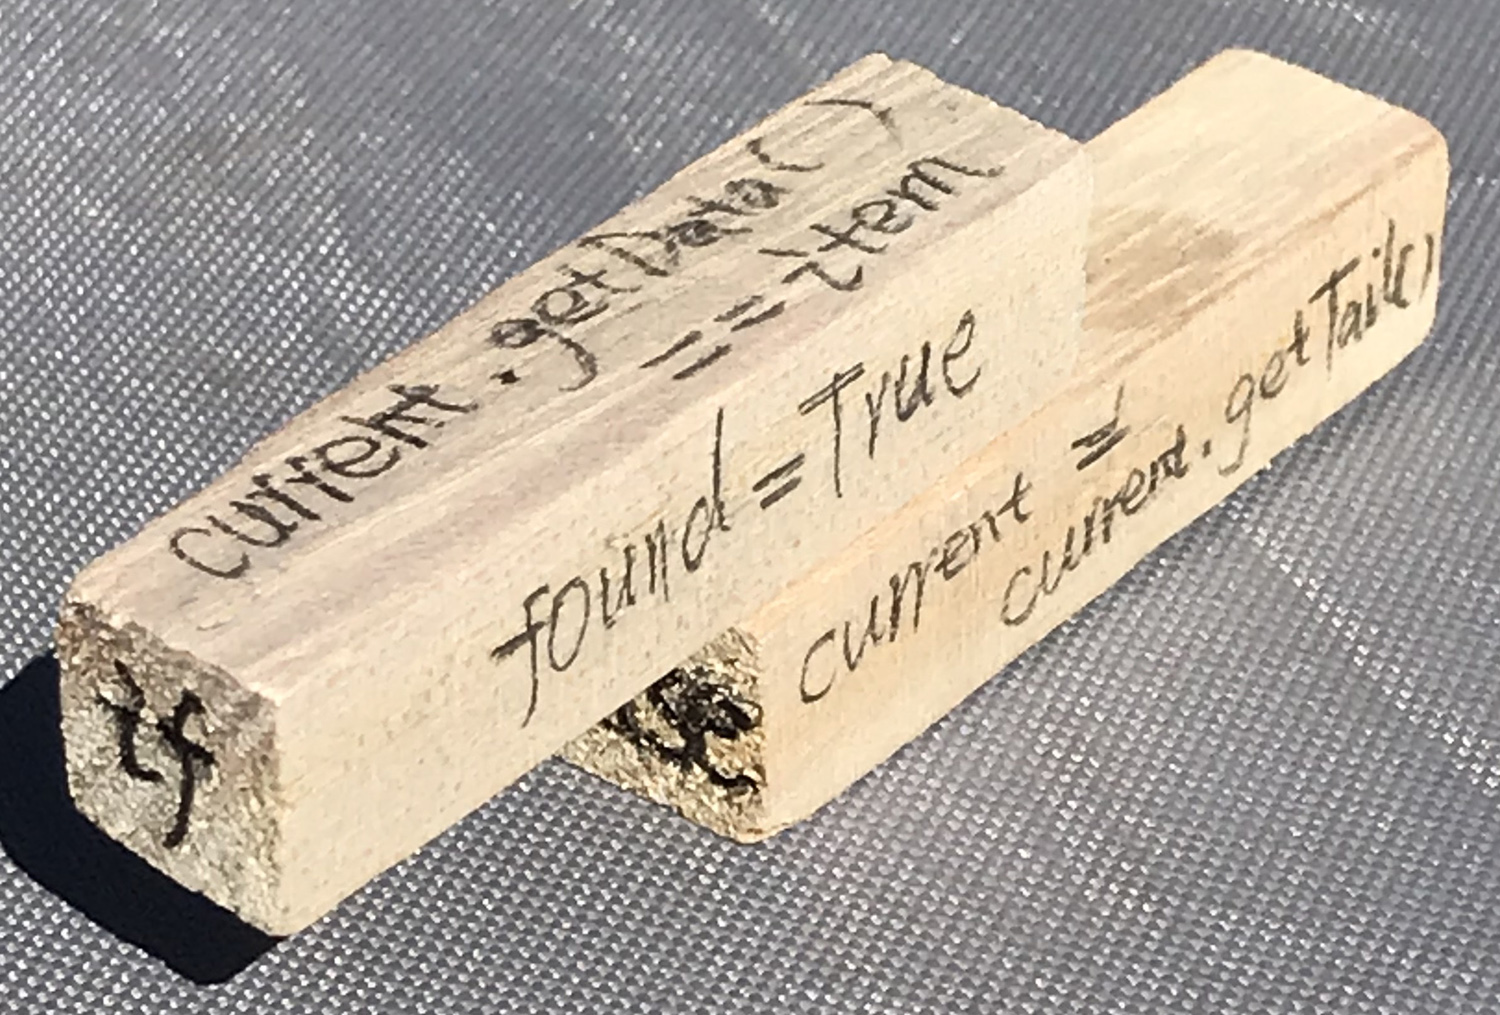 if
current.getData()
== item
found = True
current =
current.getTail()